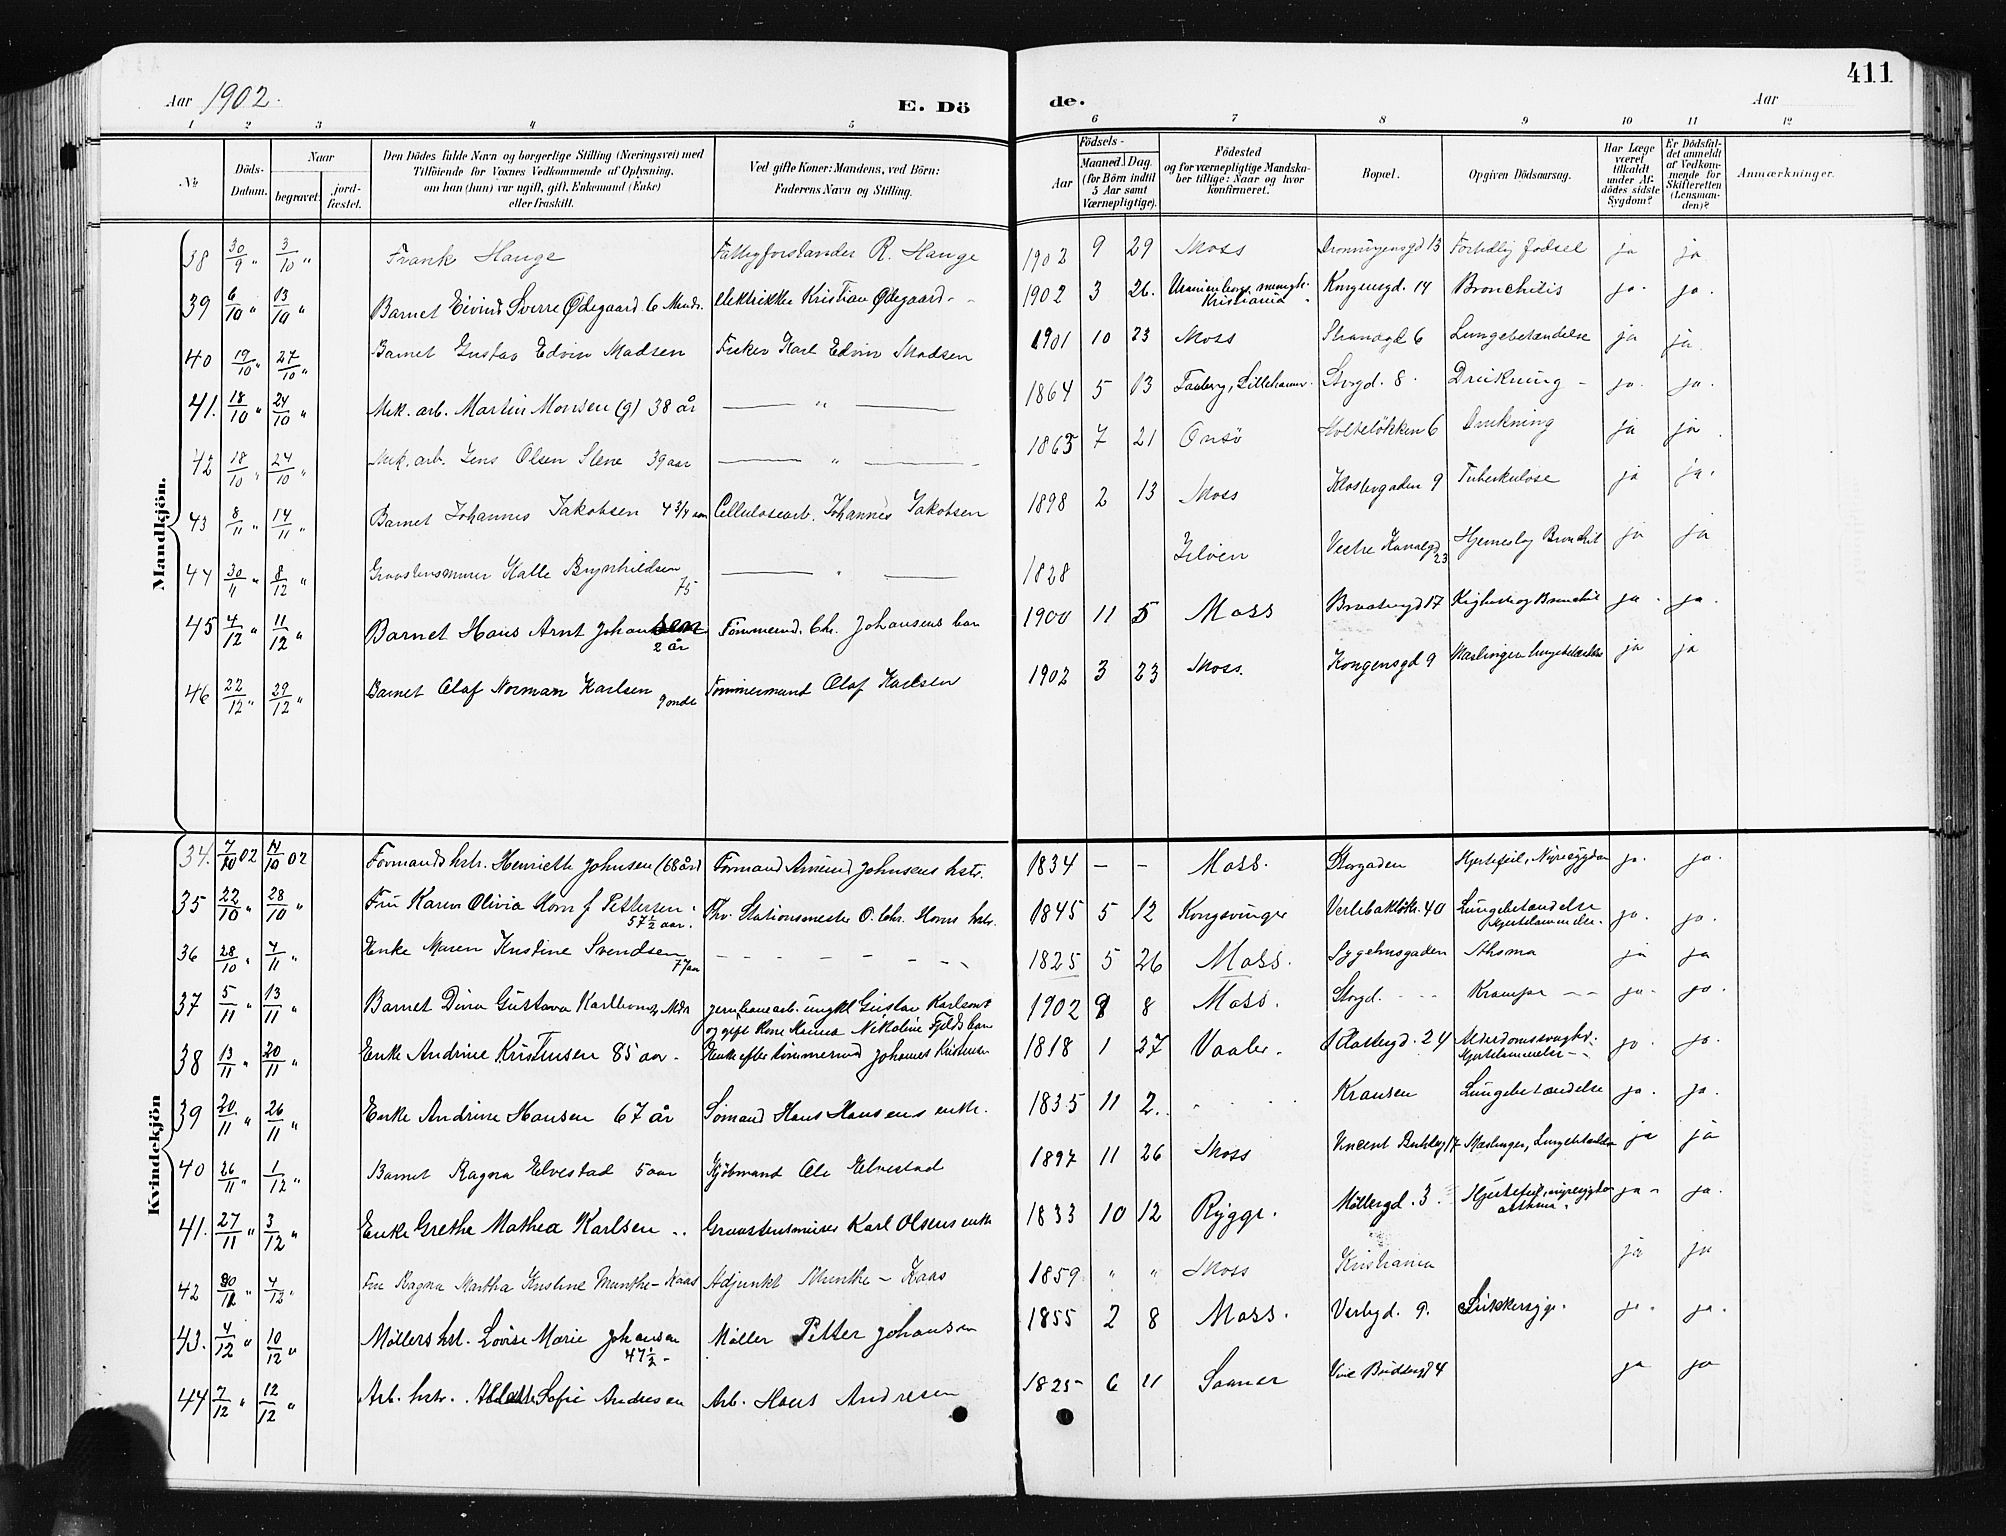 411
Aar 1902.
E. Dö
de.
Aar
1 2 3 4 5 6 7 8 9 10 11 12
No
Döds-Datum.
Naar
begravet.
jord-fæstet.
Den Dödes fulde Navn og borgerlige Stilling (Næringsvei) med
Tilföiende for Voxnes Vedkommende af Oplysning,
om han (hun) var ugift, gift, Enkemand (Enke)
eller fraskilt.
Ved gifte Koner: Mandens, ved Börn:
Faderens Navn og Stilling.
Födsels-
Aar
Maaned.
Dag.
(for Börn indtil
5 Aar samt
Værnepligtige).
Födested
og for værnepligtige Mandska-
ber tillige: Naar og hvor
konfirmeret.
Bopæl.
Opgiven Dödsaarsag.
Har Læge
været
tilkaldt
under Af-
dödes sidste
Sygdom?
Er Dödsfal-
det anmeldt
af Vedkom-
mende for
Skifteretten
(Lensman-
den)?
Anmærkninger.
Mandkjön.
38 30/9 " 3/10 " Frank Hauge Fattigforstander R. Hauge 1902 9 29 Moss Dronningensgd 13 Fortidlig fødsel ja ja
39 6/10 " 13/10 " Barnet Eivind Sverre Ødegaard 6 Mndr. elektrikke Kristian Ødegaard 1902 3 26. Kristiania Kongensgd. 14 Bronchitis ja. ja.
40 19/10 " 27/10 " Barnet Gustav Edvin Madsen Fisker Karl Edvin Madsen 1901 10 23 Moss Strandgd 6 Lungebetændelse ja ja.
41. 18/10 " 24/10 " Mek. arb. Martin Monsen (g) 38 år — " — 1864 5 13 Faaberg, Lillehammer. Storgd. 8. Drukning - ja. ja.
42 18/10 " 24/10 " Mek. arb. Jens Olsen Slene 39 aar — " — 1863 7 21 Onsø Holteløkken 6 Drukning ja ja.
43 8/11 " 14/11 " Barnet Johannes Jakobsen 4 3/4 aar Cellulosearb. Johannes Jakobsen 1898 2 13 Moss Klostergaden 9 Tuberkulose ja ja.
44 30/11 " 8/12 " Graastensmurer Kalle Brynhildsen 75 — " — 1828 Jeløen Vestre Kanalgd 23 Bronchit ja ja
45 4/12 " 11/12 " Barnet Hans Arnt Johansen 2 år Tømmermd. Chr. Johansens barn 1900 11 5 Moss 17 Kighoste og Bronchit ja. ja.
46 22/12 " 29/12 " Barnet Olaf Norman Karlsen Tømmermand Olaf Karlsen 1902 3 23 Moss. Kongensgd 9 Mæslinger ja ja
Kvindekjön
34. 7/10 02 14/10 02 Formandshstr. Henriette Johnsen (68 år) Formand Amund Johnsens hstr. 1834 - - Moss. Storgaden Hjertefeil, Nyresygdom ja. ja.
35 22/10 " 28/10 " Fru Karen Olivia Horn f Pettersen 57 1/2 aar. Fhv. Stationsmester O. Chr. Horns hstr. 1845 5 12 Kongsvinger 40 Lungebetændelse Hjertelammelse. ja. ja.
36 28/10 " 4/11 " Enke Maren Kristine Svendsen 77 aar - - - - - - 1825 5 26 Moss. Sygehusgaden Asthma ja ja
37 5/11 " 13/11 " Barnet Dina Gustava Gustav Karlsens og gift Kone Hanna Nikoline Fjelds barn 1902 9 8 Moss. Storgd. - - Krampe - - ja. ja.
38 13/11 " 20/11 " Enke Andrine Kristensen 85 aar. Enke efter tømmermd Johannes Kristensen 1818 1 27 Vaaler. Klostergd. 24 Alderdomssvaghed: Hjertelammelse - ja. ja.
39 20/11 " 26/11 " Enke Andrine Hansen 67 år Sømand Hans Hansens enke. 1835 11 2. Kransen Lungebetændelse ja. ja.
40 26/11 " 1/12 " Barnet Ragna Elvestad 5 aar Kjøbmand Ole Elvestad 1897 11 26 Moss Vincent 17 Mæslinger, Lungebetændelse ja ja
41. 27/11 " 3/12 " Enke Grethe Mathea Karlsen .. Graastensmurer Karl Olsens enke 1833 10 12 Rygge. Møllergd. 3. Hjertefeil, nyresygdom asthma. ja - ja.
42 30/12 " 4/12 " Fru Ragna Martha Kristine Munthe-Kaas Adjunkt Munthe-Kaas 1859 " " Moss Kristiania ja ja
43. 4/12 " 10/12 " Møllers hst. Lovise Marie Johansen 47 1/2 - Møller Petter Johansen 1855 2 8 Moss. Værbgd. 9. Sukkersyge. ja. ja.
44 7/12 " 12/12 " Arb. hstr. Sofie Andresen Arb. Hans Andresen 1825- 6 11 Saaner 4 ja ja